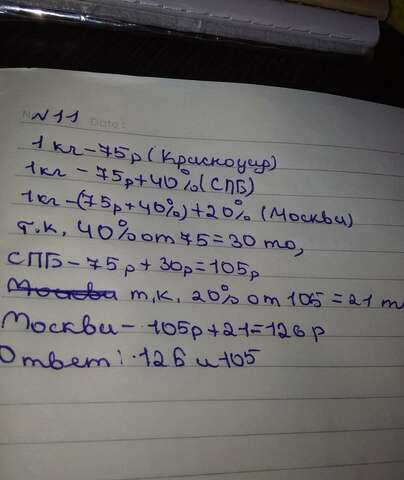 N11
Date:
1 кг - 75р (Краснодар)
1кг - 75р+40% (СПБ)
1кг-(75р+40%)+20% (Москва)
т.к. 40% от 75=30 то,
СПБ-75р+30р=105р
Москва т.к. 20% от 105=21 т
Москва-105р+21=126р
Ответ: 126 и 105